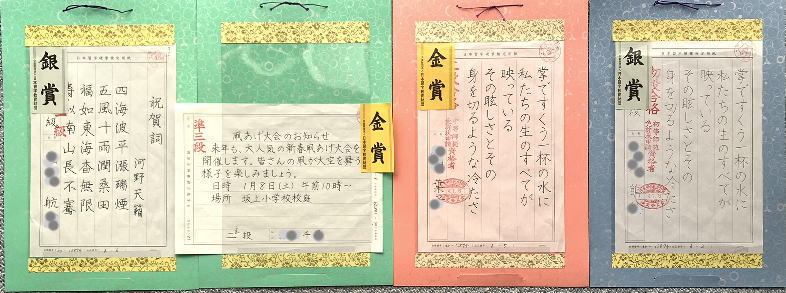 銀賞
祝賀詞
河野天籟
四海波平漲瑞煙
五風十雨潤桑田
福如東海杳無限
似南山長不騫
級
航
金賞
準三段
凧あげ大会のお知らせ
来年も、大人気の新春凧あげ大会を
開催します。皆さんの凧が大空を舞う
様子を楽しみましょう。
日時 1月8日(土)午前10時~
場所 坂上小学校校庭
二段
金賞
掌ですくう一杯の水に
私たちの生のすべてが
映っている
その眩しさとその
身を切るような冷たさ
葉
銀賞
掌ですくう一杯の水に
私たちの生のすべてが
映っている
その眩しさとその
身を切るような冷たさ